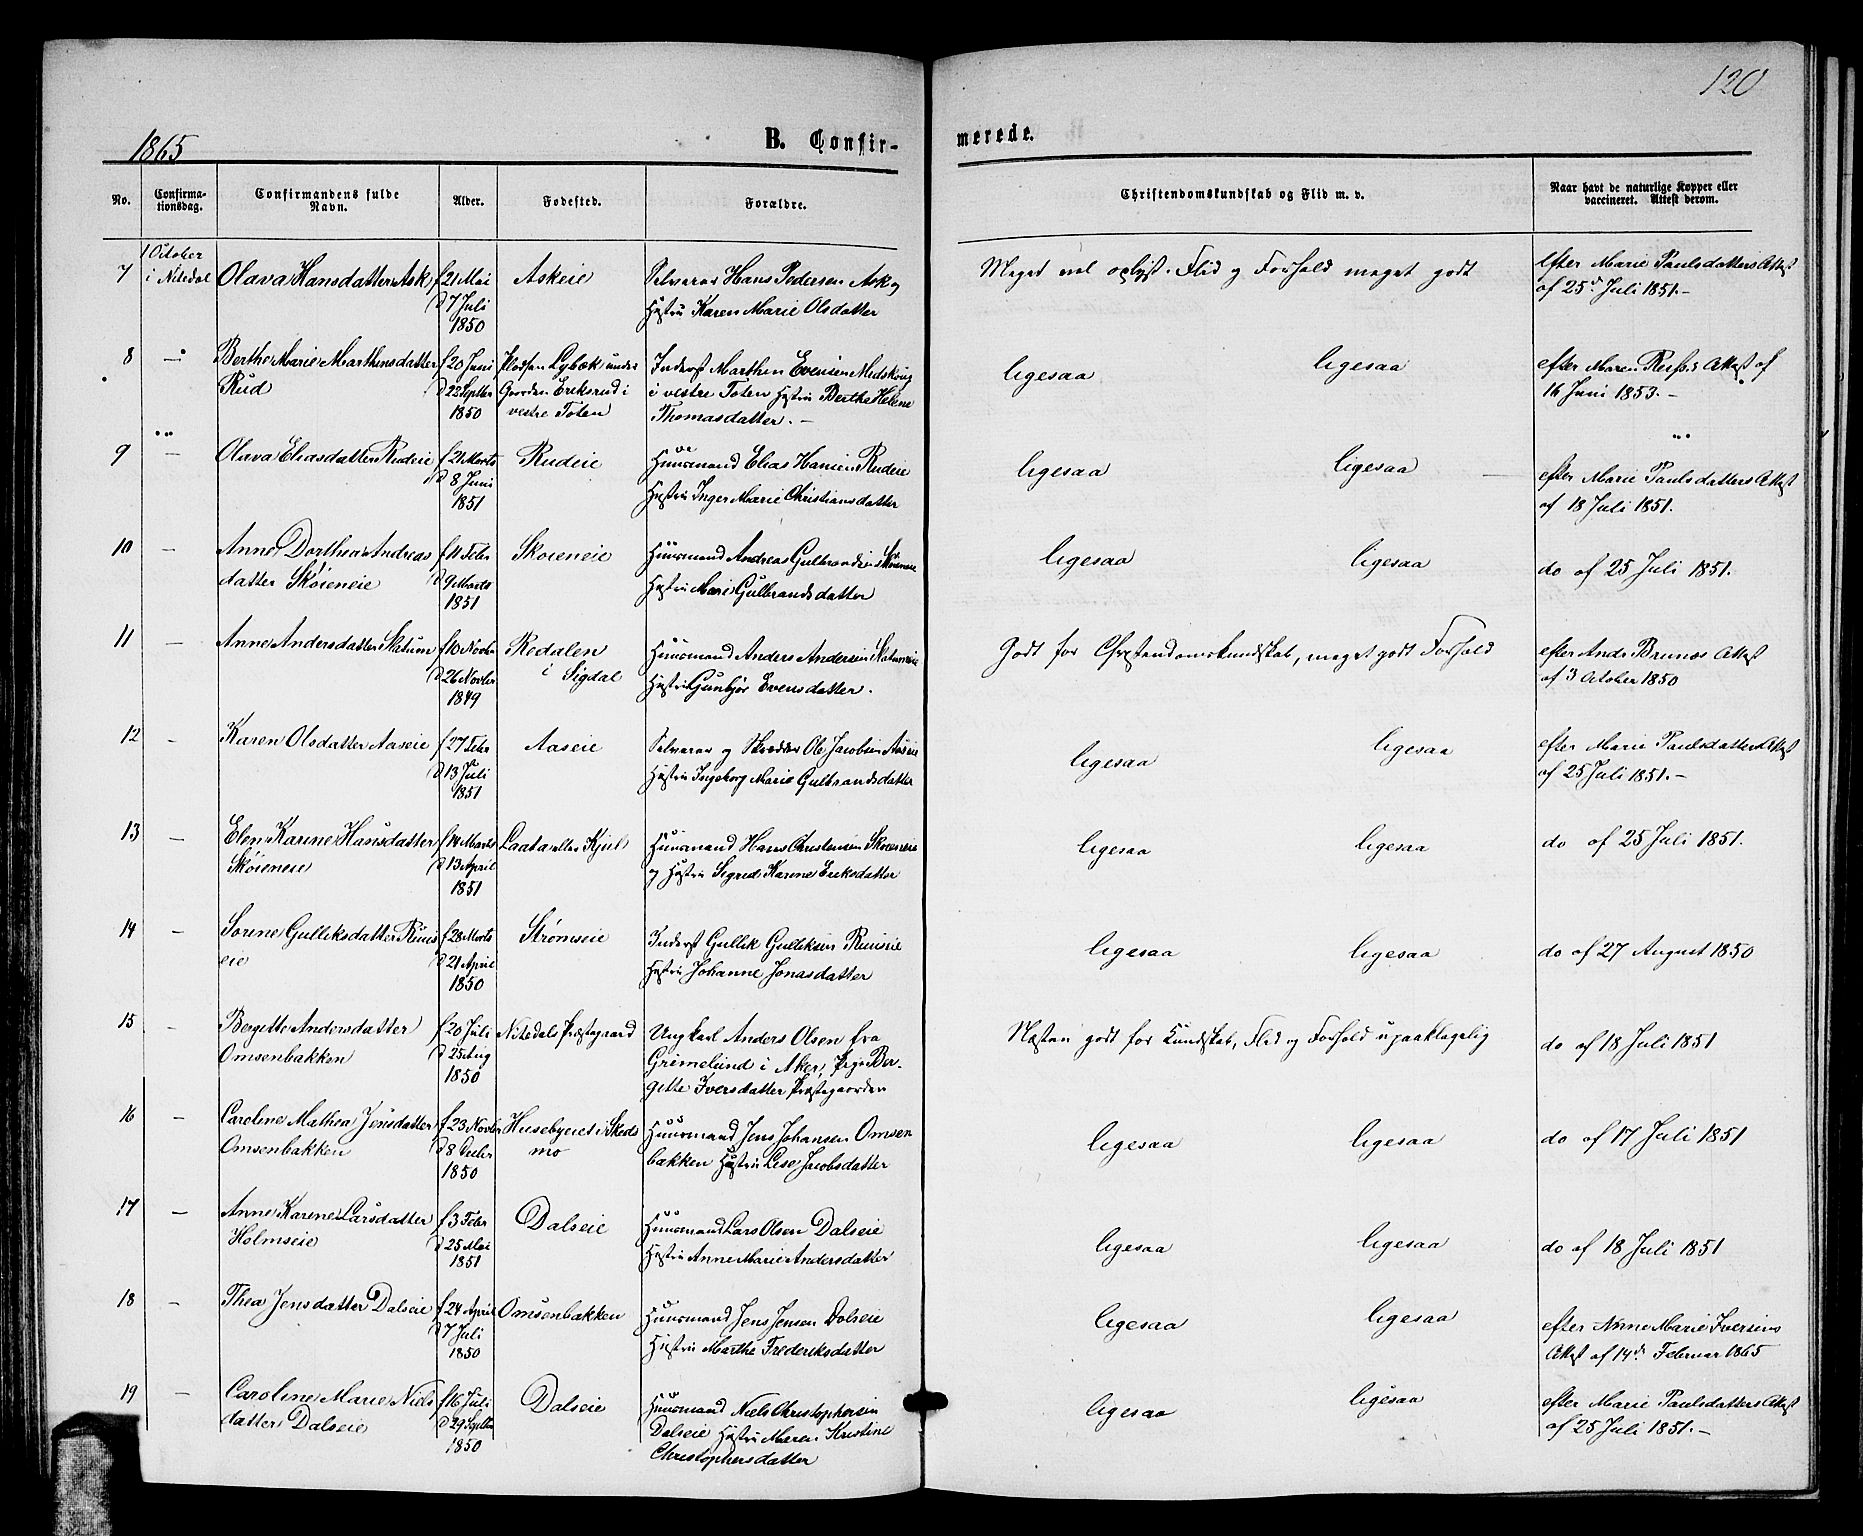 120
1865
B. Confir-
merede.
No.
Confirma-
tionsdag.
Confirmandens fulde
Navn.
Alder.
Fødested.
Forældre.
Christendomskundskab og Flid m. v.
Naar havt de naturlige Kopper eller
vaccineret. Attest derom.
1 October
7 i Nitedal Olava Hansdatter Ask f 21 Mai Askeie Selveier Hans Pedersen Ask og Meget vel oplyst. Flid og Forhold meget godt efter Marie Paulsdatters Attest
d 7 Juli Hustru Karen Marie Olsdatter af 25 Juli 1851.-
1850
8 — Berthe Marie Marthinsdatter f 20 Juni Pladsen Lybæk under Inderst Marthin Evensen Midskoug ligesaa ligesaa efter Maren Reiss's Attest af
Rud d 22 Septbr Gaarden Eriksrud i i vestre Toten Hustru Berthe Helene 16 Juni 1853.-
1850 vestre Toten Thomasdatter.-
9 — Olava Eliasdatter Rudeie f 21 Marts Rudeie Huusmand Elias Hansen Rudeie ligesaa ligesaa efter Marie Paulsdatters Attest
d 8 Juni Hustru Inger Marie Christiansdatter af 18 Juli 1851.
1851
10 — Anne Dorthea Andreas f 11 Febr Skøieneie Huusmand Andreas Gulbrandsen Skøieneie ligesaa ligesaa do af 25 Juli 1851.
datter Skøieneie d 9 Marts Hustru Mari Gulbrandsdatter
1851
11 — Anne Andersdatter Skatum f 10 Novbr Redalen Huusmand Anders Andersen Skatumeie Godt for Christendomskundskab, meget godt Forhold efter And: Brunos Attest
d 26 Novbr i Sigdal Hustru Gunbjør Evensdatter. af 3 October 1850
1849
12 — Karen Olsdatter Aaseie f 27 Febr Aaseie Selveier og Skrædder Ole Jacobsen Aaseie ligesaa ligesaa efter Marie Paulsdatters Attest
d 13 Juli Hustru Ingeborg Marie Gulbrandsdatter af 25 Juli 1851.-
1851
13 — Elen Karine Hansdatter f 14 Marts Laata eller Kjul Huusmand Hans Christensen Skøieneie ligesaa ligesaa do af 25 Juli 1851.
Skøieneie d 13 April og Hustru Sigrid Karine Eriksdatter
1851
14 — Sørine Gulliksdatter Ruus f 28 Marts Strømseie Inderst Gullik Gulliksen Ruuseie ligesaa ligesaa do af 27 August 1850
eie d 21 April Hustru Johanne Jonasdatter
1850
15 — Bergitte Andersdatter f 20 Juli Nitedals Præstegaard Ungkarl Anders Olsen fra Næsten godt for Kundskab, Flid og Forhold upaaklagelig do af 18 Juli 1851
Omsenbakken d 25 Aug Grimelund i Aker, Pige Ber-
1850 gitte Iversdatter Præstegaarden
16 — Caroline Mathea Jensdatter f 23 Novbr Husebyeret i Skeds Huusmand Jens Johansen Omsen ligesaa ligesaa do af 17 Juli 1851
Omsenbakken d 8 Decbr mo bakken Hustru Lise Jacobsdatter
1850
17 — Anne Karine Larsdatter f 3 Febr Dalseie Huusmand Lars Olsen Dalseie ligesaa ligesaa do af 18 Juli 1851
Holmseie d 25 Mai Hustru Anne Marie Andersdatter
1851
18 — Thea Jensdatter Dalseie f 24 April Omsenbakken Huusmand Jens Jensen Dalseie ligesaa ligesaa efter Anne Marie Iversens
d 7 Juli Hustru Marthe Frederiksdatter Attest af 14de Februar 1865
1850
19 — Caroline Marie Niels f 16 Juli Dalseie Huusmand Niels Christophersen ligesaa ligesaa efter Marie Paulsdatters Attest
datter Dalseie d 29 Septbr Dalseie Hustru Maren Kristine af 25 Juli 1851.-
1850 Christophersdatter